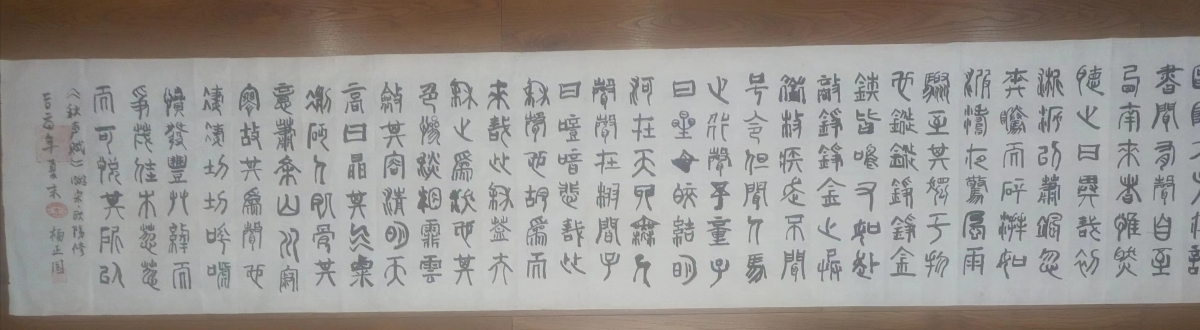 書聞有聲自西
南來者然
聽之曰異哉初
淅瀝以蕭颯忽
奔騰而砰湃如
濤夜驚風雨
驟至其觸于物
也鏦鏦錚錚金
鐵皆鳴又如赴
敵錚錚金之
銜枚疾走不聞
號令但聞人馬
之行聲予童子
曰星月皎結明
河在天四無人
聲聲在樹間予
曰噫嘻悲哉此
秋聲也胡為而
來哉此秋蓋夫
秋之為狀也其
色慘淡烟霏雲
斂其容清明天
高日晶其氣栗
冽砭人肌骨其
意蕭條山川寂
寥故其為聲也
淒淒切切呼號
憤發豐艸綠而
爭茂佳木蔥蔥
而可悦其所以
《秋声赋》宋欧陽修
年夏末